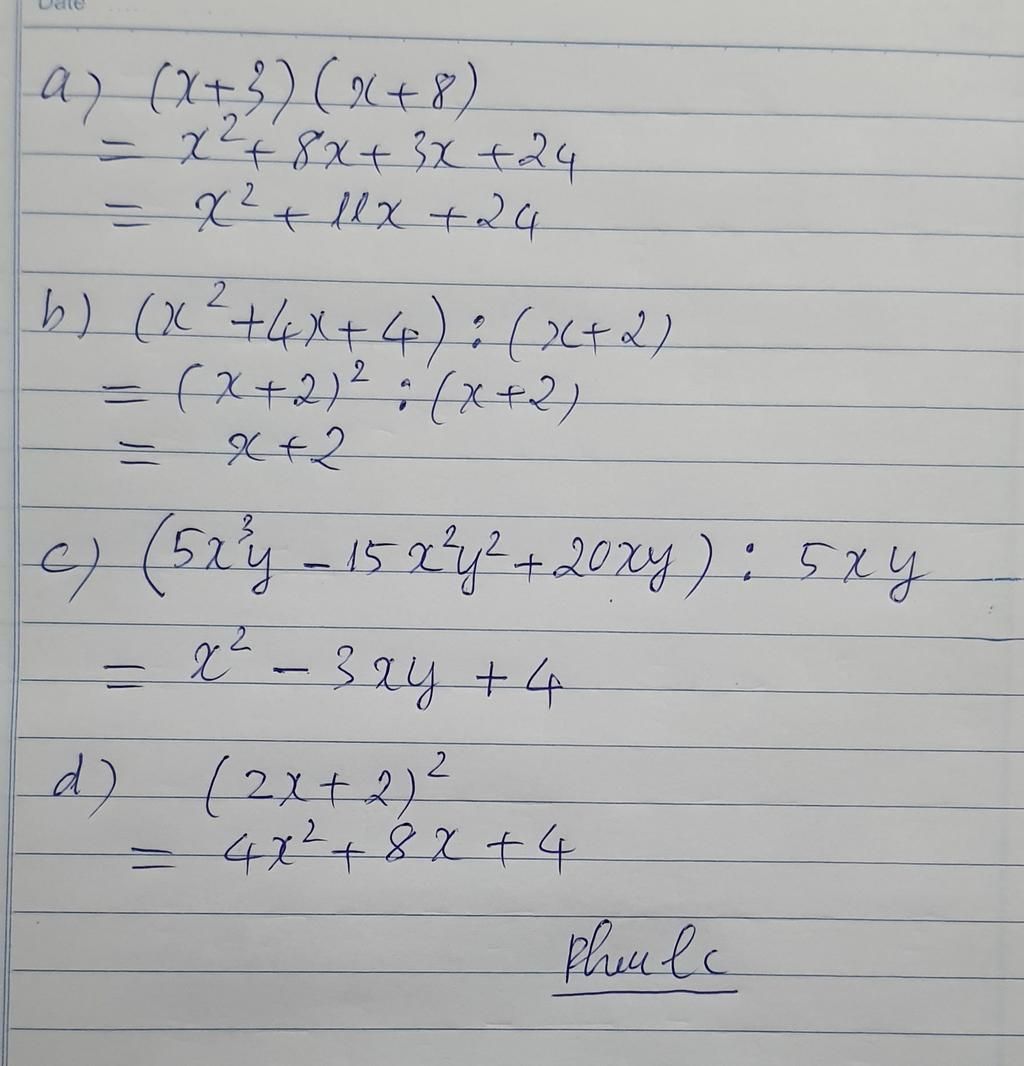 Date
a) (x+3)(x+8)
= x² + 8x + 3x + 24
= x² + 11x + 24
b) (x² + 4x + 4) : (x+2)
= (x+2)² : (x+2)
= x+2
c) (5x³y - 15x²y² + 20xy) : 5xy
= x² - 3xy + 4
d) (2x+2)²
= 4x² + 8x + 4